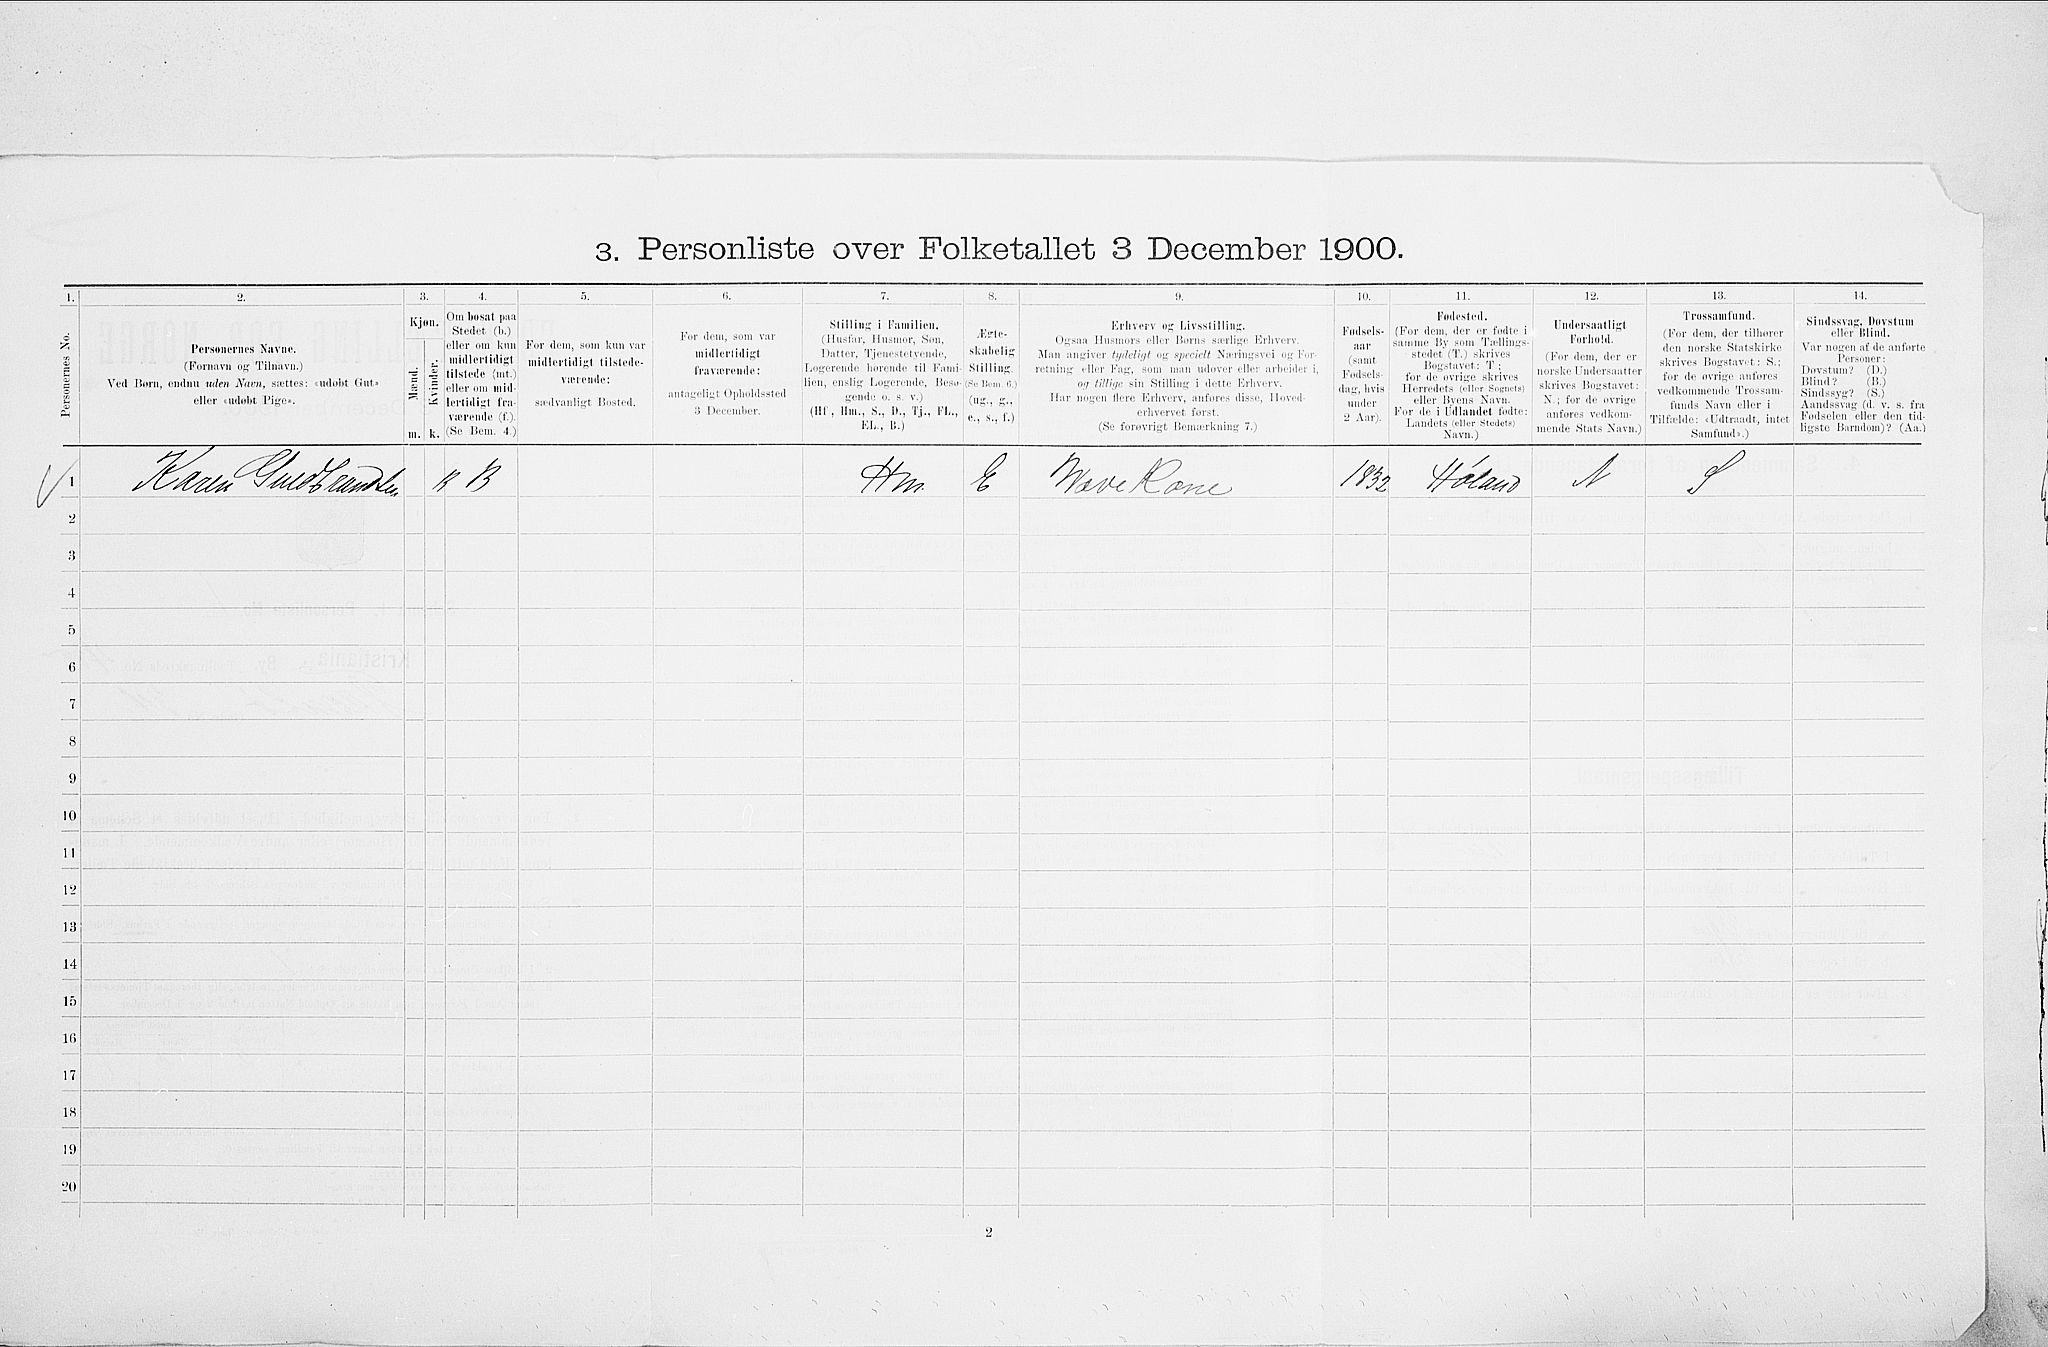 3. Personliste over Folketallet 3 December 1900.
1. 2. 3. 4. 5. 6. 7. 8. 9. 10. 11. 12. 13. 14.
Personernes No.
Personernes Navne.
(Fornavn og Tilnavn.)
Ved Børn, endnu uden Navn, sættes: «udøbt Gut»
eller «udøbt Pige».
Kjøn.
Mænd.
Kvinder.
m. k.
Om bosat paa
Stedet (b.)
eller om kun
midlertidigt
tilstede (mt.)
eller om mid-
lertidigt fra-
værende (f.).
(Se Bem. 4.)
For dem, som kun var
midlertidigt tilstede-
værende:
sædvanligt Bosted.
For dem, som var
midlertidigt
fraværende:
antageligt Opholdssted
3 December.
Stilling i Familien.
(Husfar, Husmor, Søn,
Datter, Tjenestetyende,
Logerende hørende til Fami-
lien, enslig Logerende, Besø-
gende o. s. v.)
(Hf., Hm., S., D., Tj., FL.,
EL., B.)
Ægte-
skabelig
Stilling.
(Se Bem. 6.)
(ug., g.,
e., s., f.)
Erhverv og Livsstilling.
Ogsaa Husmors eller Børns særlige Erhverv.
Man angiver tydeligt og specielt Næringsvei og For-
retning eller Fag, som man udøver eller arbeider i,
og tillige sin Stilling i dette Erhverv.
Har nogen flere Erhverv, anføres disse, Hoved-
erhvervet først.
(Se forøvrigt Bemærkning 7.)
Fødsels-
aar
(samt
Fødsels-
dag, hvis
under
2 Aar).
Fødested.
(For dem, der er fødte i
samme By som Tællings-
stedet (T.) skrives
Bogstavet: T;
for de øvrige skrives
Herredets (eller Sognets)
eller Byens Navn.
For de i Udlandet fødte:
Landets (eller Stedets)
Navn.)
Undersaatligt
Forhold.
(For dem, der er
norske Undersaatter
skrives Bogstavet:
N.; for de øvrige
anføres vedkom-
mende Stats Navn.)
Trossamfund.
(For dem, der tilhører
den norske Statskirke
skrives Bogstavet: S.;
for de øvrige anføres
vedkommende Trossam-
funds Navn eller i
Tilfælde: «Udtraadt, intet
Samfund».)
Sindssvag, Døvstum
eller Blind.
Var nogen af de anførte
Personer:
Døvstum? (D.)
Blind? (B.)
Sindssyg? (S.)
Aandssvag (d. v. s. fra
Fødselen eller den tid-
ligste Barndom)? (Aa.)
1 Karen Guldbrandsen k B Hm. E Væve Kone 1832 Høland N S
2
3
4
5
6
7
8
9
10
11
12
13
14
15
16
17
18
19
20
2